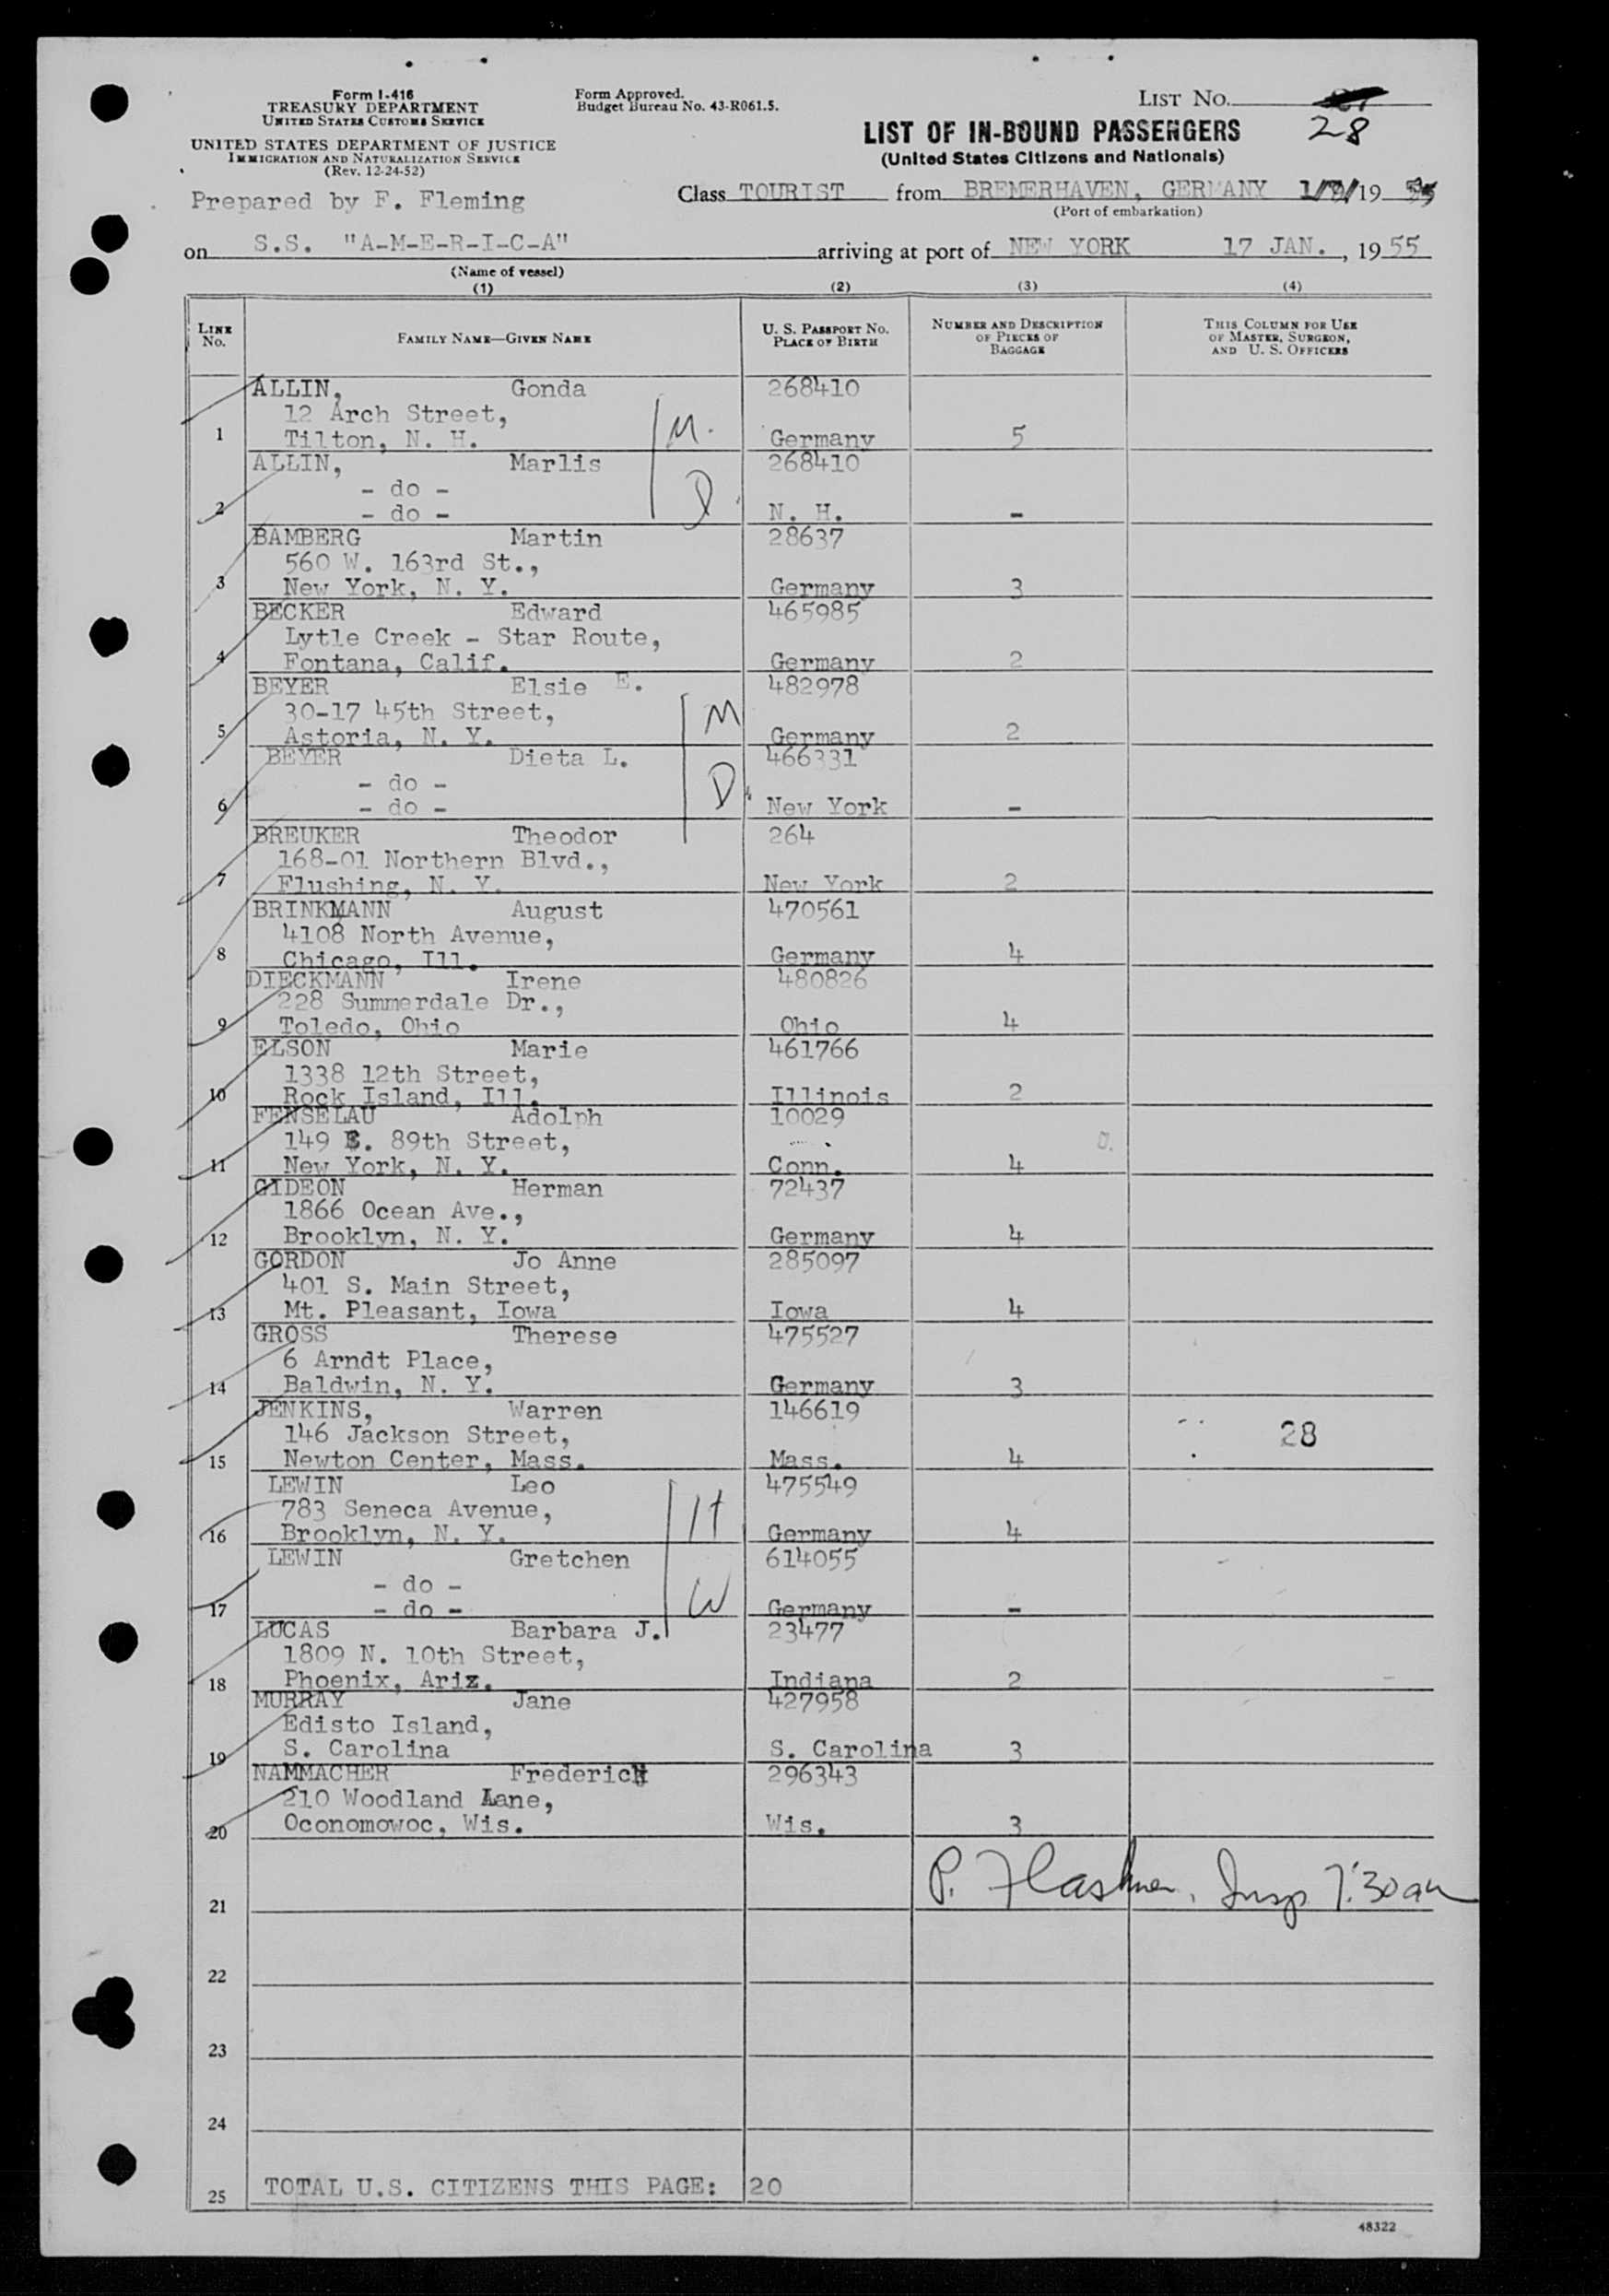 Form I-416
TREASURY DEPARTMENT
UNITED STATES CUSTOMS SERVICE
UNITED STATES DEPARTMENT OF JUSTICE
IMMIGRATION AND NATURALIZATION SERVICE
(Rev. 12-24-52)
Form Approved.
Budget Bureau No. 43-R061.5.
LIST NO.
28
LIST OF IN-BOUND PASSENGERS
(United States Citizens and Nationals)
Prepared by F. Fleming
Class TOURIST from BREMERHAVEN, GERMANY 19
(Port of embarkation)
on S.S. "A-M-E-R-I-C-A" arriving at port of NEW YORK 17 JAN., 1955
(Name of vessel)
(1) (2) (3) (4)
LINE NO. FAMILY NAME—GIVEN NAME U. S. PASSPORT NO. PLACE OF BIRTH NUMBER AND DESCRIPTION OF PIECES OF BAGGAGE THIS COLUMN FOR USE OF MASTER, SURGEON, AND U. S. OFFICERS
ALLIN, Gonda 268410
12 Arch Street, M.
1 Tilton, N. H. Germany 5
ALLIN, Marlis 268410
- do - D
2 - do - N. H. -
BAMBERG Martin 28637
560 W. 163rd St.,
3 New York, N. Y. Germany 3
BECKER Edward 465985
Lytle Creek - Star Route,
4 Fontana, Calif. Germany 2
BEYER Elsie E. 482978
30-17 45th Street, M
5 Astoria, N. Y. Germany 2
BEYER Dieta L. 466331
- do - D
6 - do - New York -
BREUKER Theodor 264
168-01 Northern Blvd.,
7 Flushing, N. Y. New York 2
BRINKMANN August 470561
4108 North Avenue,
8 Chicago, Ill. Germany 4
DIECKMANN Irene 480826
228 Summerdale Dr.,
9 Toledo, Ohio Ohio 4
ELSON Marie 461766
1338 12th Street,
10 Rock Island, Ill. Illinois 2
FENSELAU Adolph 10029
149 E. 89th Street,
11 New York, N. Y. Conn. 4
GIDEON Herman 72437
1866 Ocean Ave.,
12 Brooklyn, N. Y. Germany 4
GORDON Jo Anne 285097
401 S. Main Street,
13 Mt. Pleasant, Iowa Iowa 4
GROSS Therese 475527
6 Arndt Place,
14 Baldwin, N. Y. Germany 3
JENKINS, Warren 146619
146 Jackson Street, 28
15 Newton Center, Mass. Mass. 4
LEWIN Leo 475549
783 Seneca Avenue, H
16 Brooklyn, N. Y. Germany 4
LEWIN Gretchen 614055
- do - W
17 - do - Germany -
LUCAS Barbara J. 23477
1809 N. 10th Street,
18 Phoenix, Ariz. Indiana 2
MURRAY Jane 427958
Edisto Island,
19 S. Carolina S. Carolina 3
NAMMACHER Frederick 296343
210 Woodland Lane,
20 Oconomowoc, Wis. Wis. 3
P. Flashner, Insp 7:30 am
21
22
23
24
25 TOTAL U.S. CITIZENS THIS PAGE: 20
48322